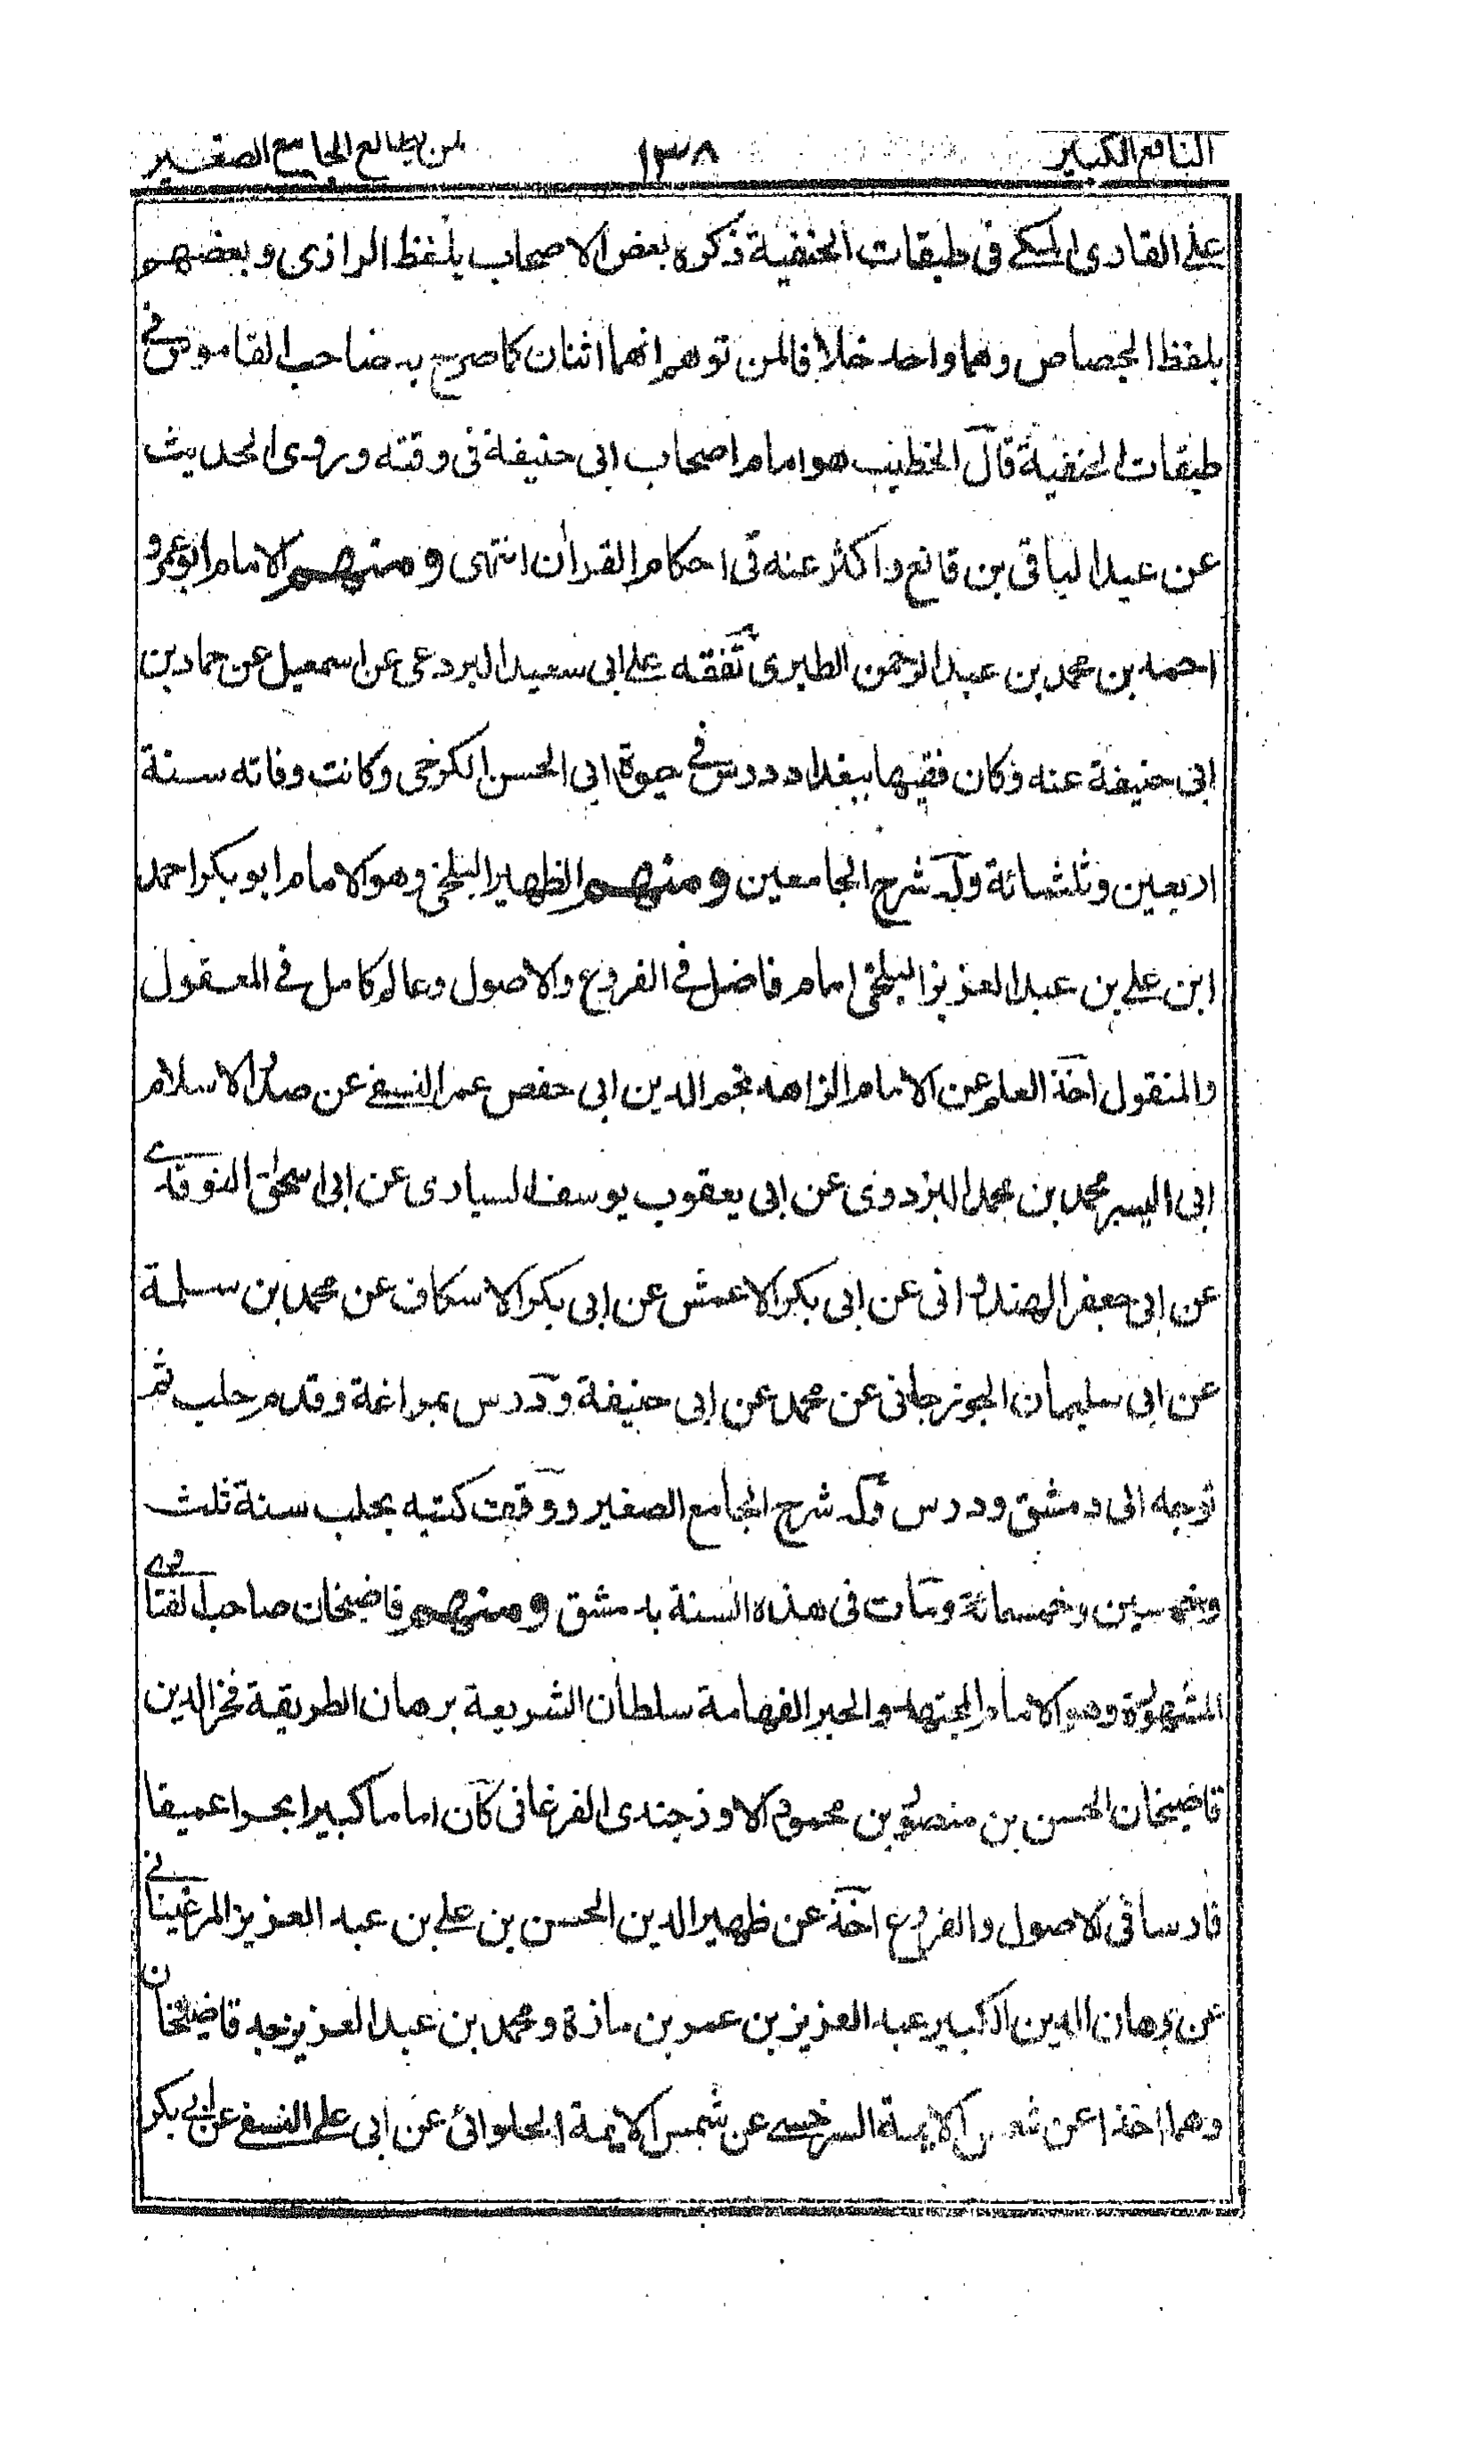 النافع الكبير ١٣٨ لمن يطالع الجامع الصغير
علي القاري المكي في طبقات الحنفية ذكره بعض الاصحاب بلفظ الرازي وبعضهم
بلفظ الجصاص وهما واحد خلافا لمن توهم انهما اثنان كما صرح به صاحب القاموس في
طبقات الحنفية قال الخطيب هو امام اصحاب ابي حنيفة في وقته وروى الحديث
عن عبد الباقي بن قانع واكثر عنه في احكام القرآن انتهى ومنهم الامام ابو عمرو
احمد بن محمد بن عبد الرحمن الطبري تفقه على ابي سعيد البردعي عن اسمعيل عن حماد بن
ابي حنيفة عنه وكان فقيها ببغداد درس في حيوة ابي الحسن الكرخي وكانت وفاته سنة
اربعين وثلثمائة وله شرح الجامعين ومنهم الظهير البلخي وهو الامام ابو بكر احمد
ابن علي بن عبد العزيز البلخي امام فاضل في الفروع والاصول وعالم كامل في المعقول
والمنقول اخذ العلم عن الامام الزاهد نجم الدين ابي حفص عمر النسفي عن صدر الاسلام
ابي اليسر محمد بن محمد البزدوي عن ابي يعقوب يوسف السياري عن ابي اسحق النوقدي
عن ابي جعفر الهندواني عن ابي بكر الاعمش عن ابي بكر الاسكاف عن محمد بن سلمة
عن ابي سليمان الجوزجاني عن محمد عن ابي حنيفة ودرس بمراغة وقدم حلب ثم
توجه الى دمشق ودرس وله شرح الجامع الصغير ووقفت كتبه بحلب سنة ثلث
وخمسين وخمسمائة ومات في هذه السنة بدمشق ومنهم قاضيخان صاحب الفتاوى
المشهورة وهو الامام المجتهد والحبر الفهامة سلطان الشريعة برهان الطريقة فخر الدين
قاضيخان الحسن بن منصور بن محمود الاوزجندي الفرغاني كان اماما كبيرا بحرا عميقا
فارسا في الاصول والفروع اخذ عن ظهير الدين الحسن بن علي بن عبد العزيز المرغيناني
عن برهان الدين الكبير عبد العزيز بن عمر بن مازة ومحمد بن عبد العزيز جد قاضيخان
وهما اخذا عن شمس الايمة السرخسي عن شمس الايمة الحلوائي عن ابي علي النسفي عن ابي بكر